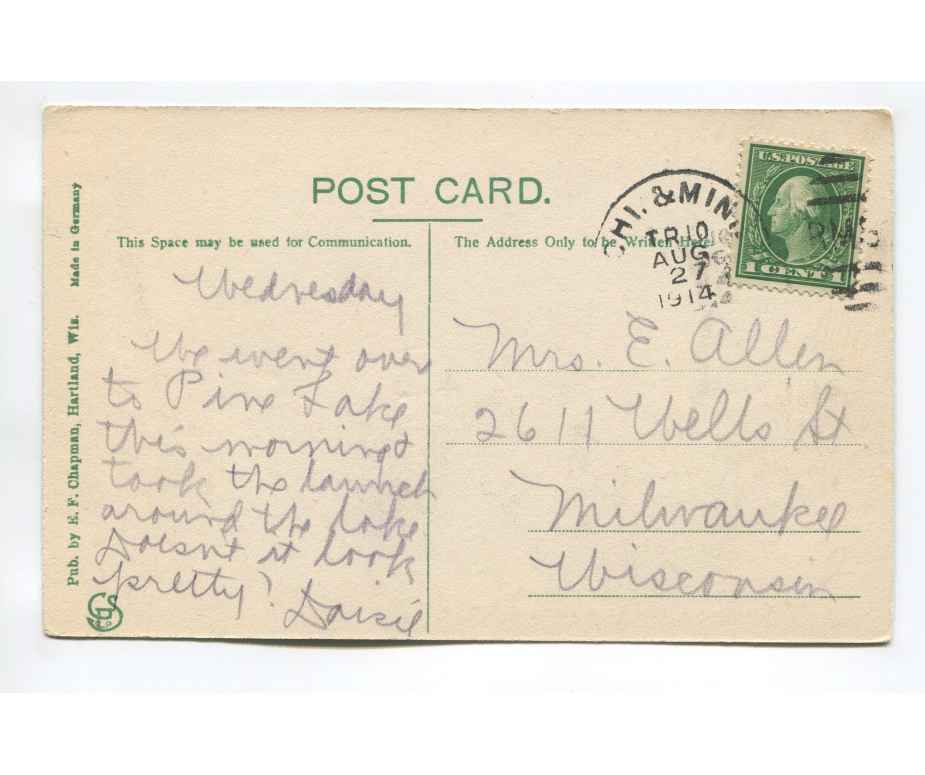 POST CARD.
This Space may be used for Communication.
The Address Only to be Written Here.
Made in Germany
Pub. by E. F. Chapman, Hartland, Wis.
CHI. & MINN
TR.10
AUG
27
1914
U.S. POSTAGE
1 CENT 1
Wednesday
We went over
to Pine Lake
this morning &
took the launch
around the lake
Doesn't it look
pretty? Daisie
Mrs. E. Allen
2611 Wells St
Milwaukee
Wisconsin